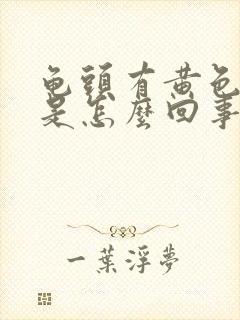 龟頭有黃色
是怎麼回事
一葉浮夢